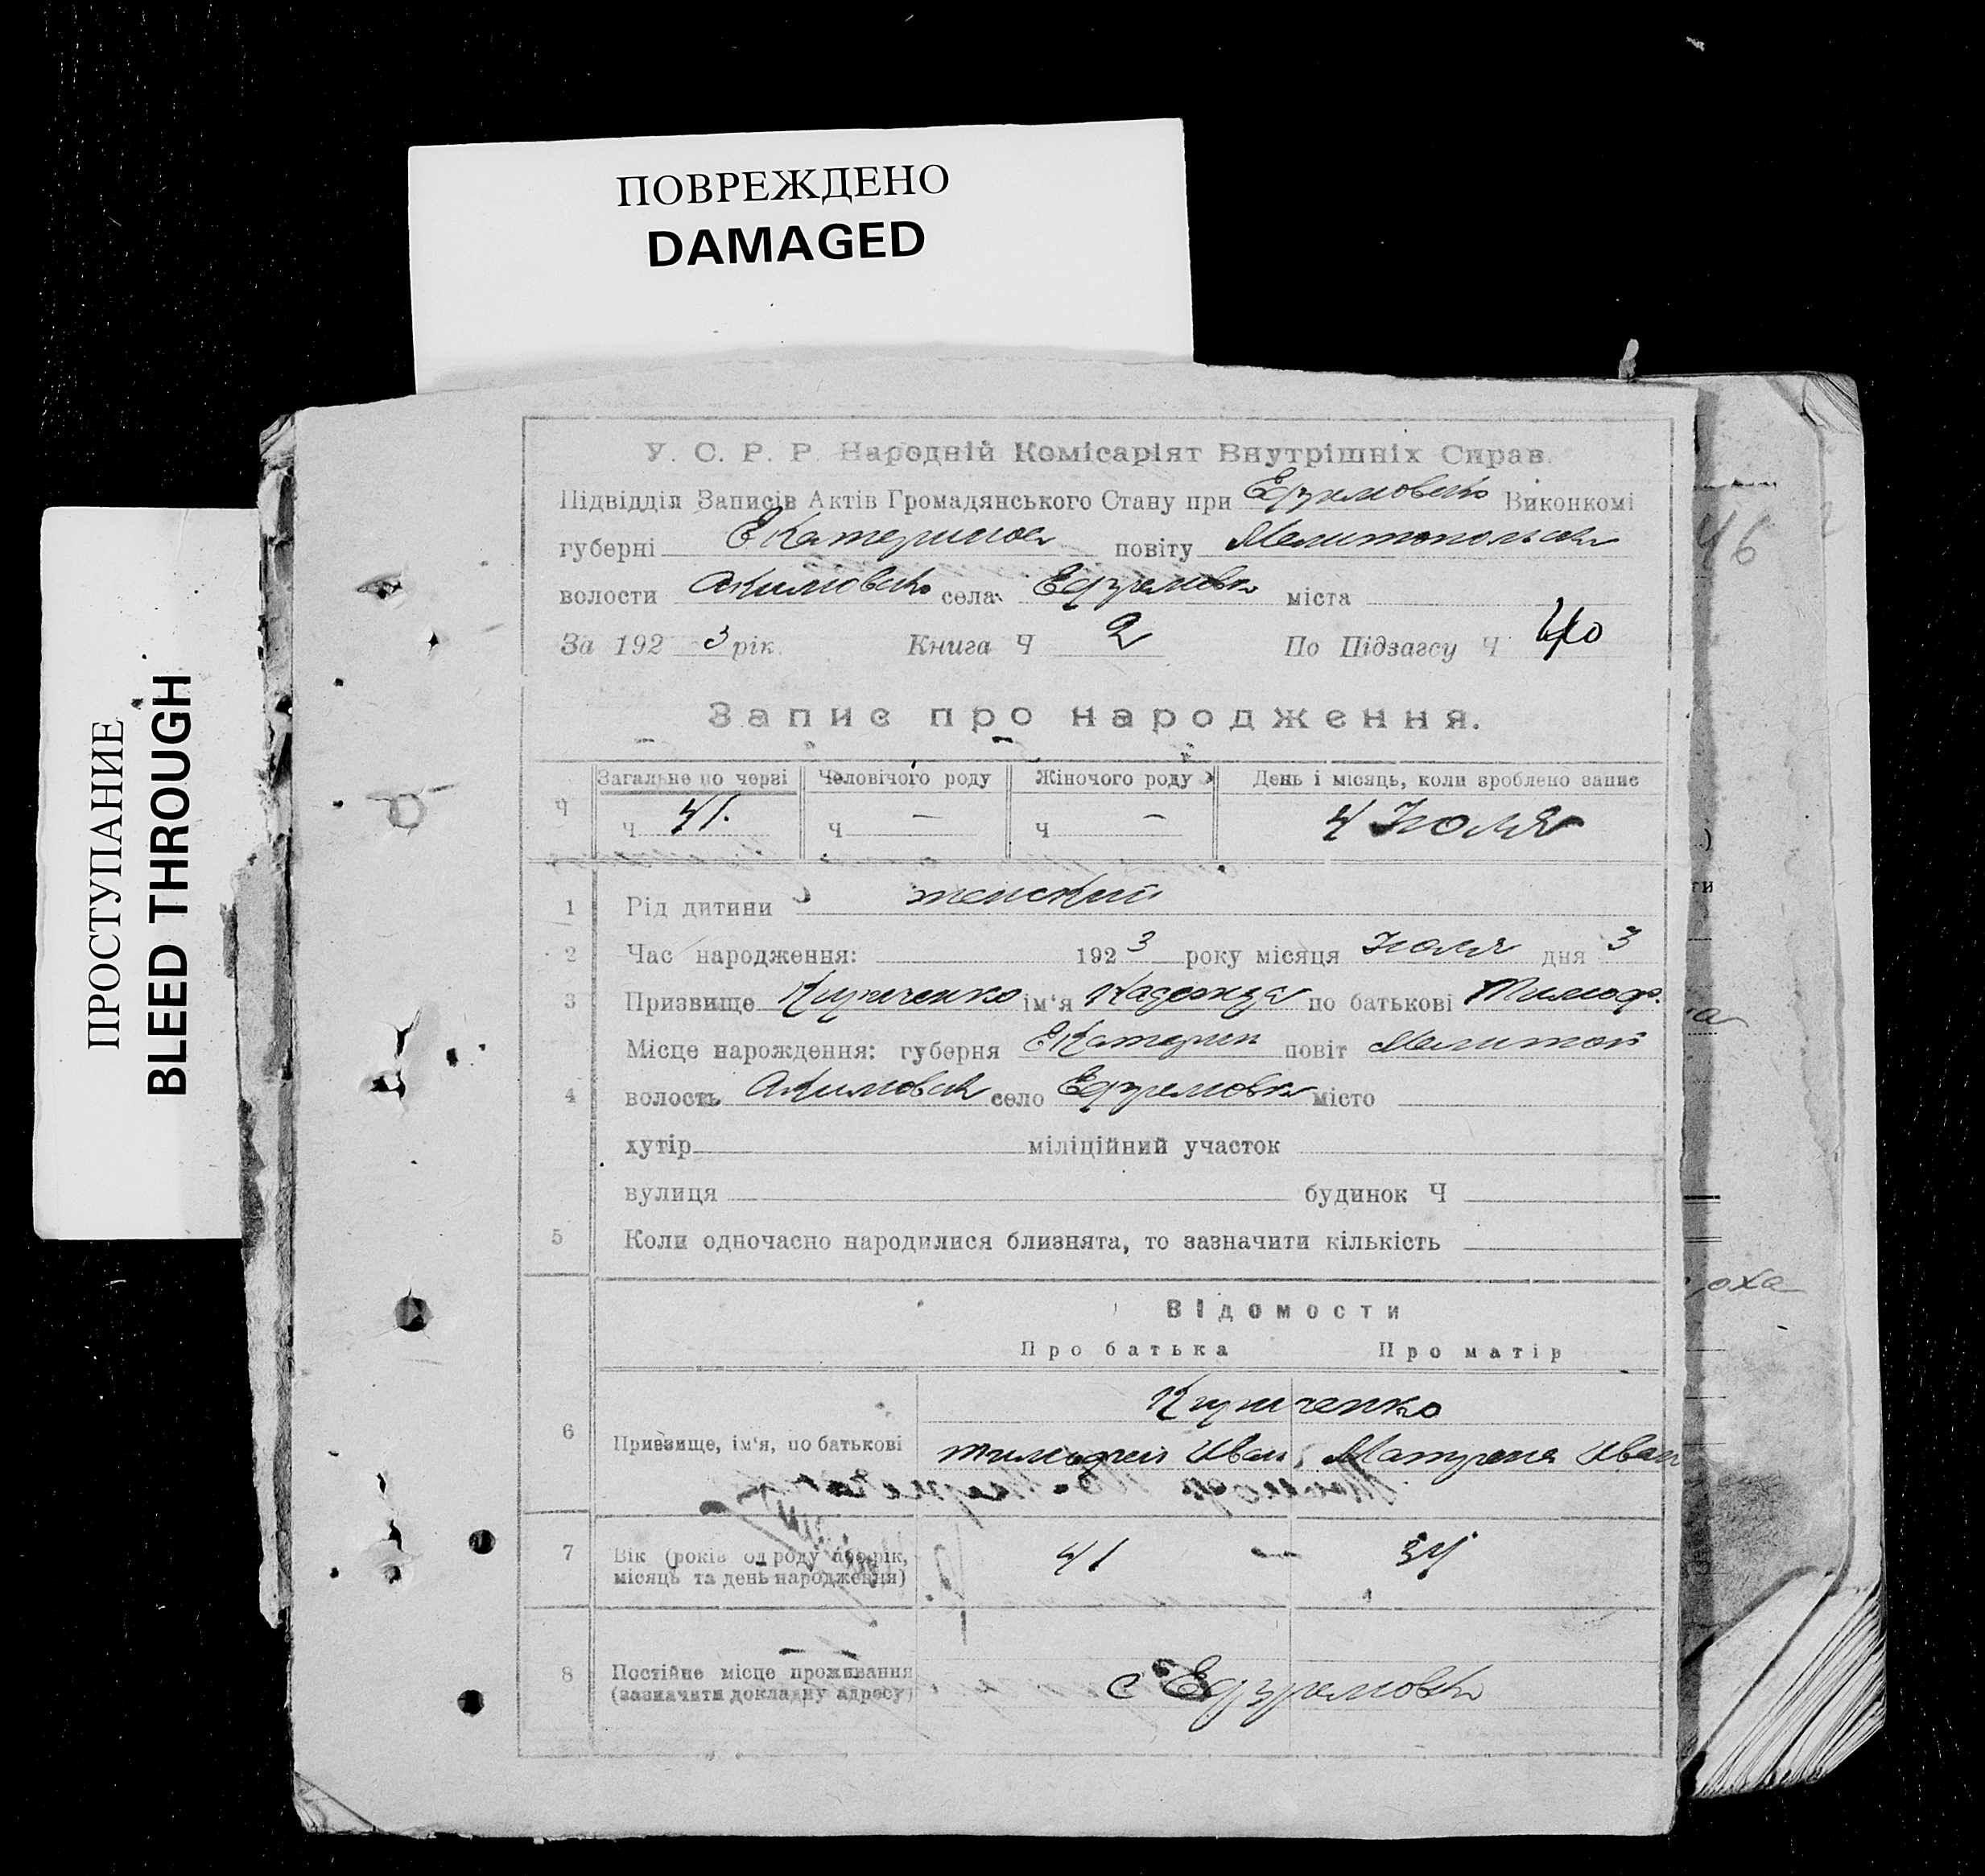 ПОВРЕЖДЕНО
DAMAGED
ПРОСТУПАНИЕ
BLEED THROUGH
У. С. Р. Р. Народній Комісаріят Внутрішніх Справ.
Підвідділ Записів Актів Громадянського Стану при Ефремовско Виконкомі
губерні Екатеринос повіту Мелитопольск
волости Акимовско села Ефремовк міста
За 192 3 рік. Книга Ч 2 По Підзагсу Ч 40
Запис про народження.
Загальне по черзі Человічого роду Жіночого роду День і місяць, коли зроблено запис
Ч Ч 41. Ч — Ч — 4 Июля
1 Рід дитини женский
2 Час народження: 192 3 року місяця Июля дня 3
3 Призвище Кириченко ім'я Надежда по батькові Тимоф.
Місце нарождення: губерня Екатерин повіт Мелитоп
4 волость Акимовск село Ефремовк місто
хутір міліційний участок
вулиця будинок Ч
5 Коли одночасно народилися близнята, то зазначити кількість
Відомости
Про батька Про матір
Кириченко
6 Призвище, ім'я, по батькові Тимофей Иван, Матрена Иван
7 Вік (років од роду або рік, 41 — 34
місяць та день народження)
8 Постійне місце проживання с Ефремовк
(зазначити докладну адресу)
46
оха